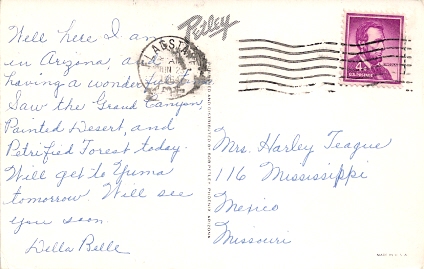 Well here I am
in Arizona, and
having a wonderful time
Saw the Grand Canyon,
Painted Desert, and
Petrified Forest today.
Will get to Yuma
tomorrow. Will see
you soon.
Della Belle
Petley
FLAGSTAFF
4¢
Mrs. Harley Teague
116 Mississippi
Mexico
Missouri
MADE IN U.S.A.